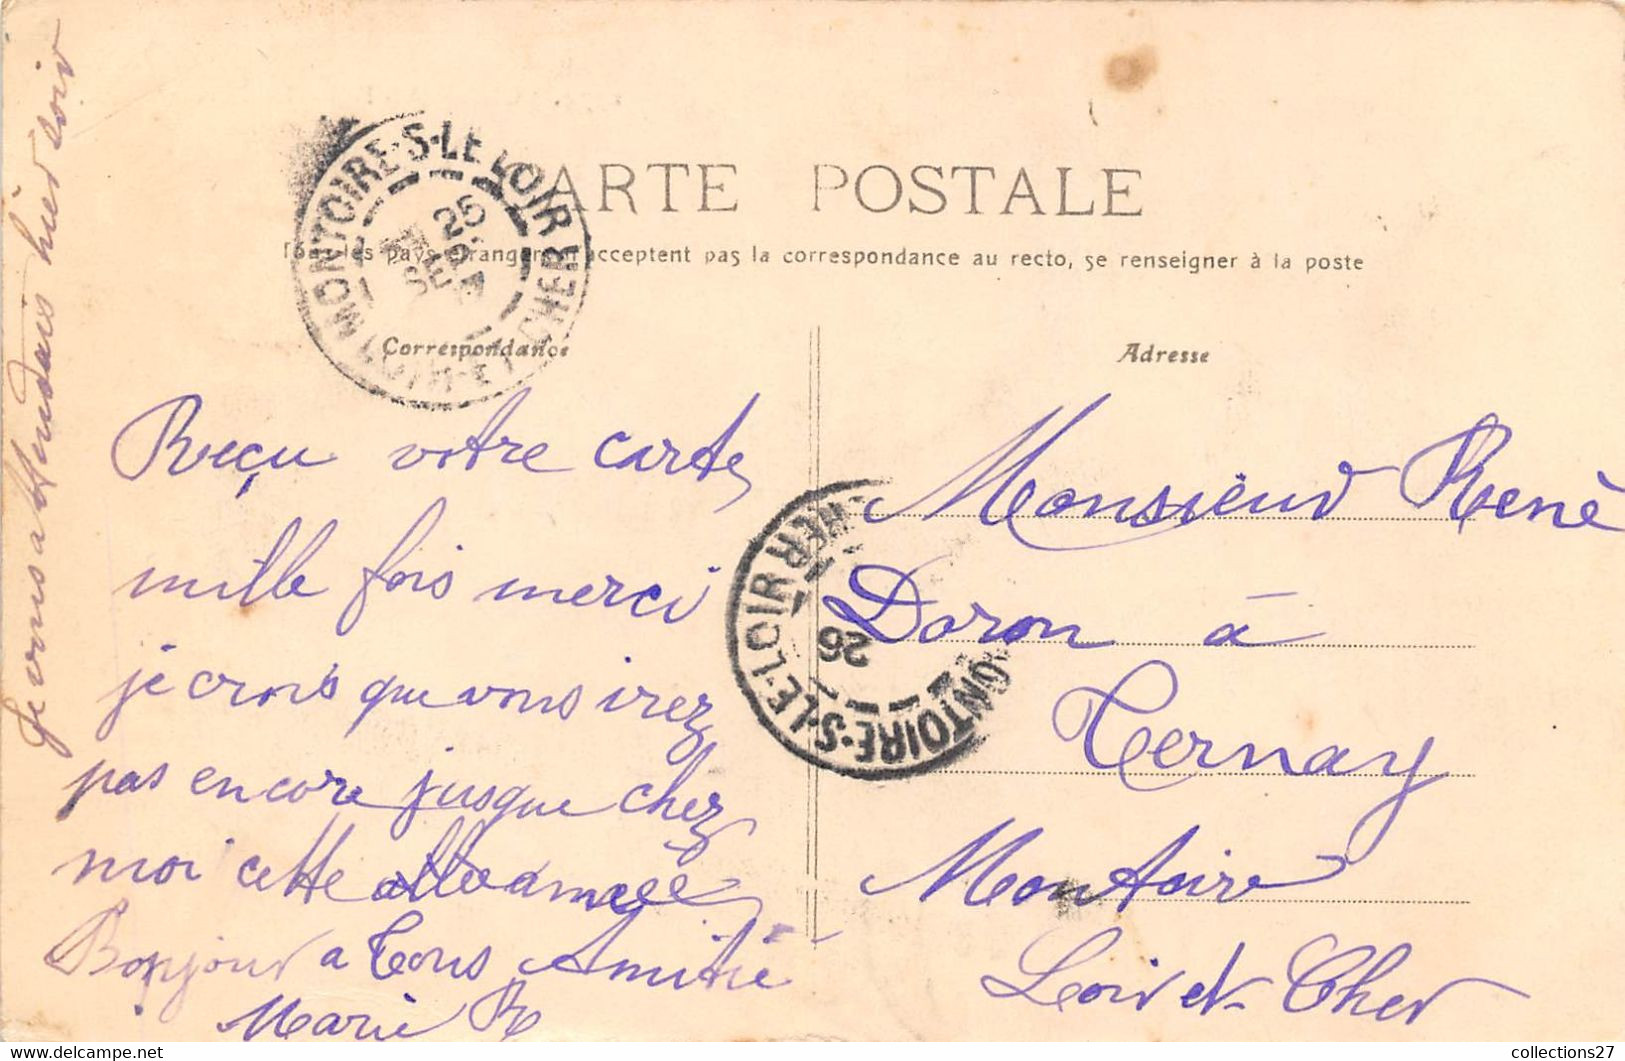 CARTE POSTALE
Tous les pays étrangers n'acceptent pas la correspondance au recto, se renseigner à la poste
Correspondance
Adresse
MONTOIRE-S-LE LOIR
LOIR-ET-CHER
25
SEPT
Reçu votre carte
mille fois merci
je crois que vous irez
pas encore jusque chez
moi cette année
Bonjour a tous Amitié
Marie R
Je vous attendais hier soir
Monsieur René
Doron à
Ternay
Montoire
Loir et Cher
MONTOIRE-S-LE-LOIR
CHER
26
collections27